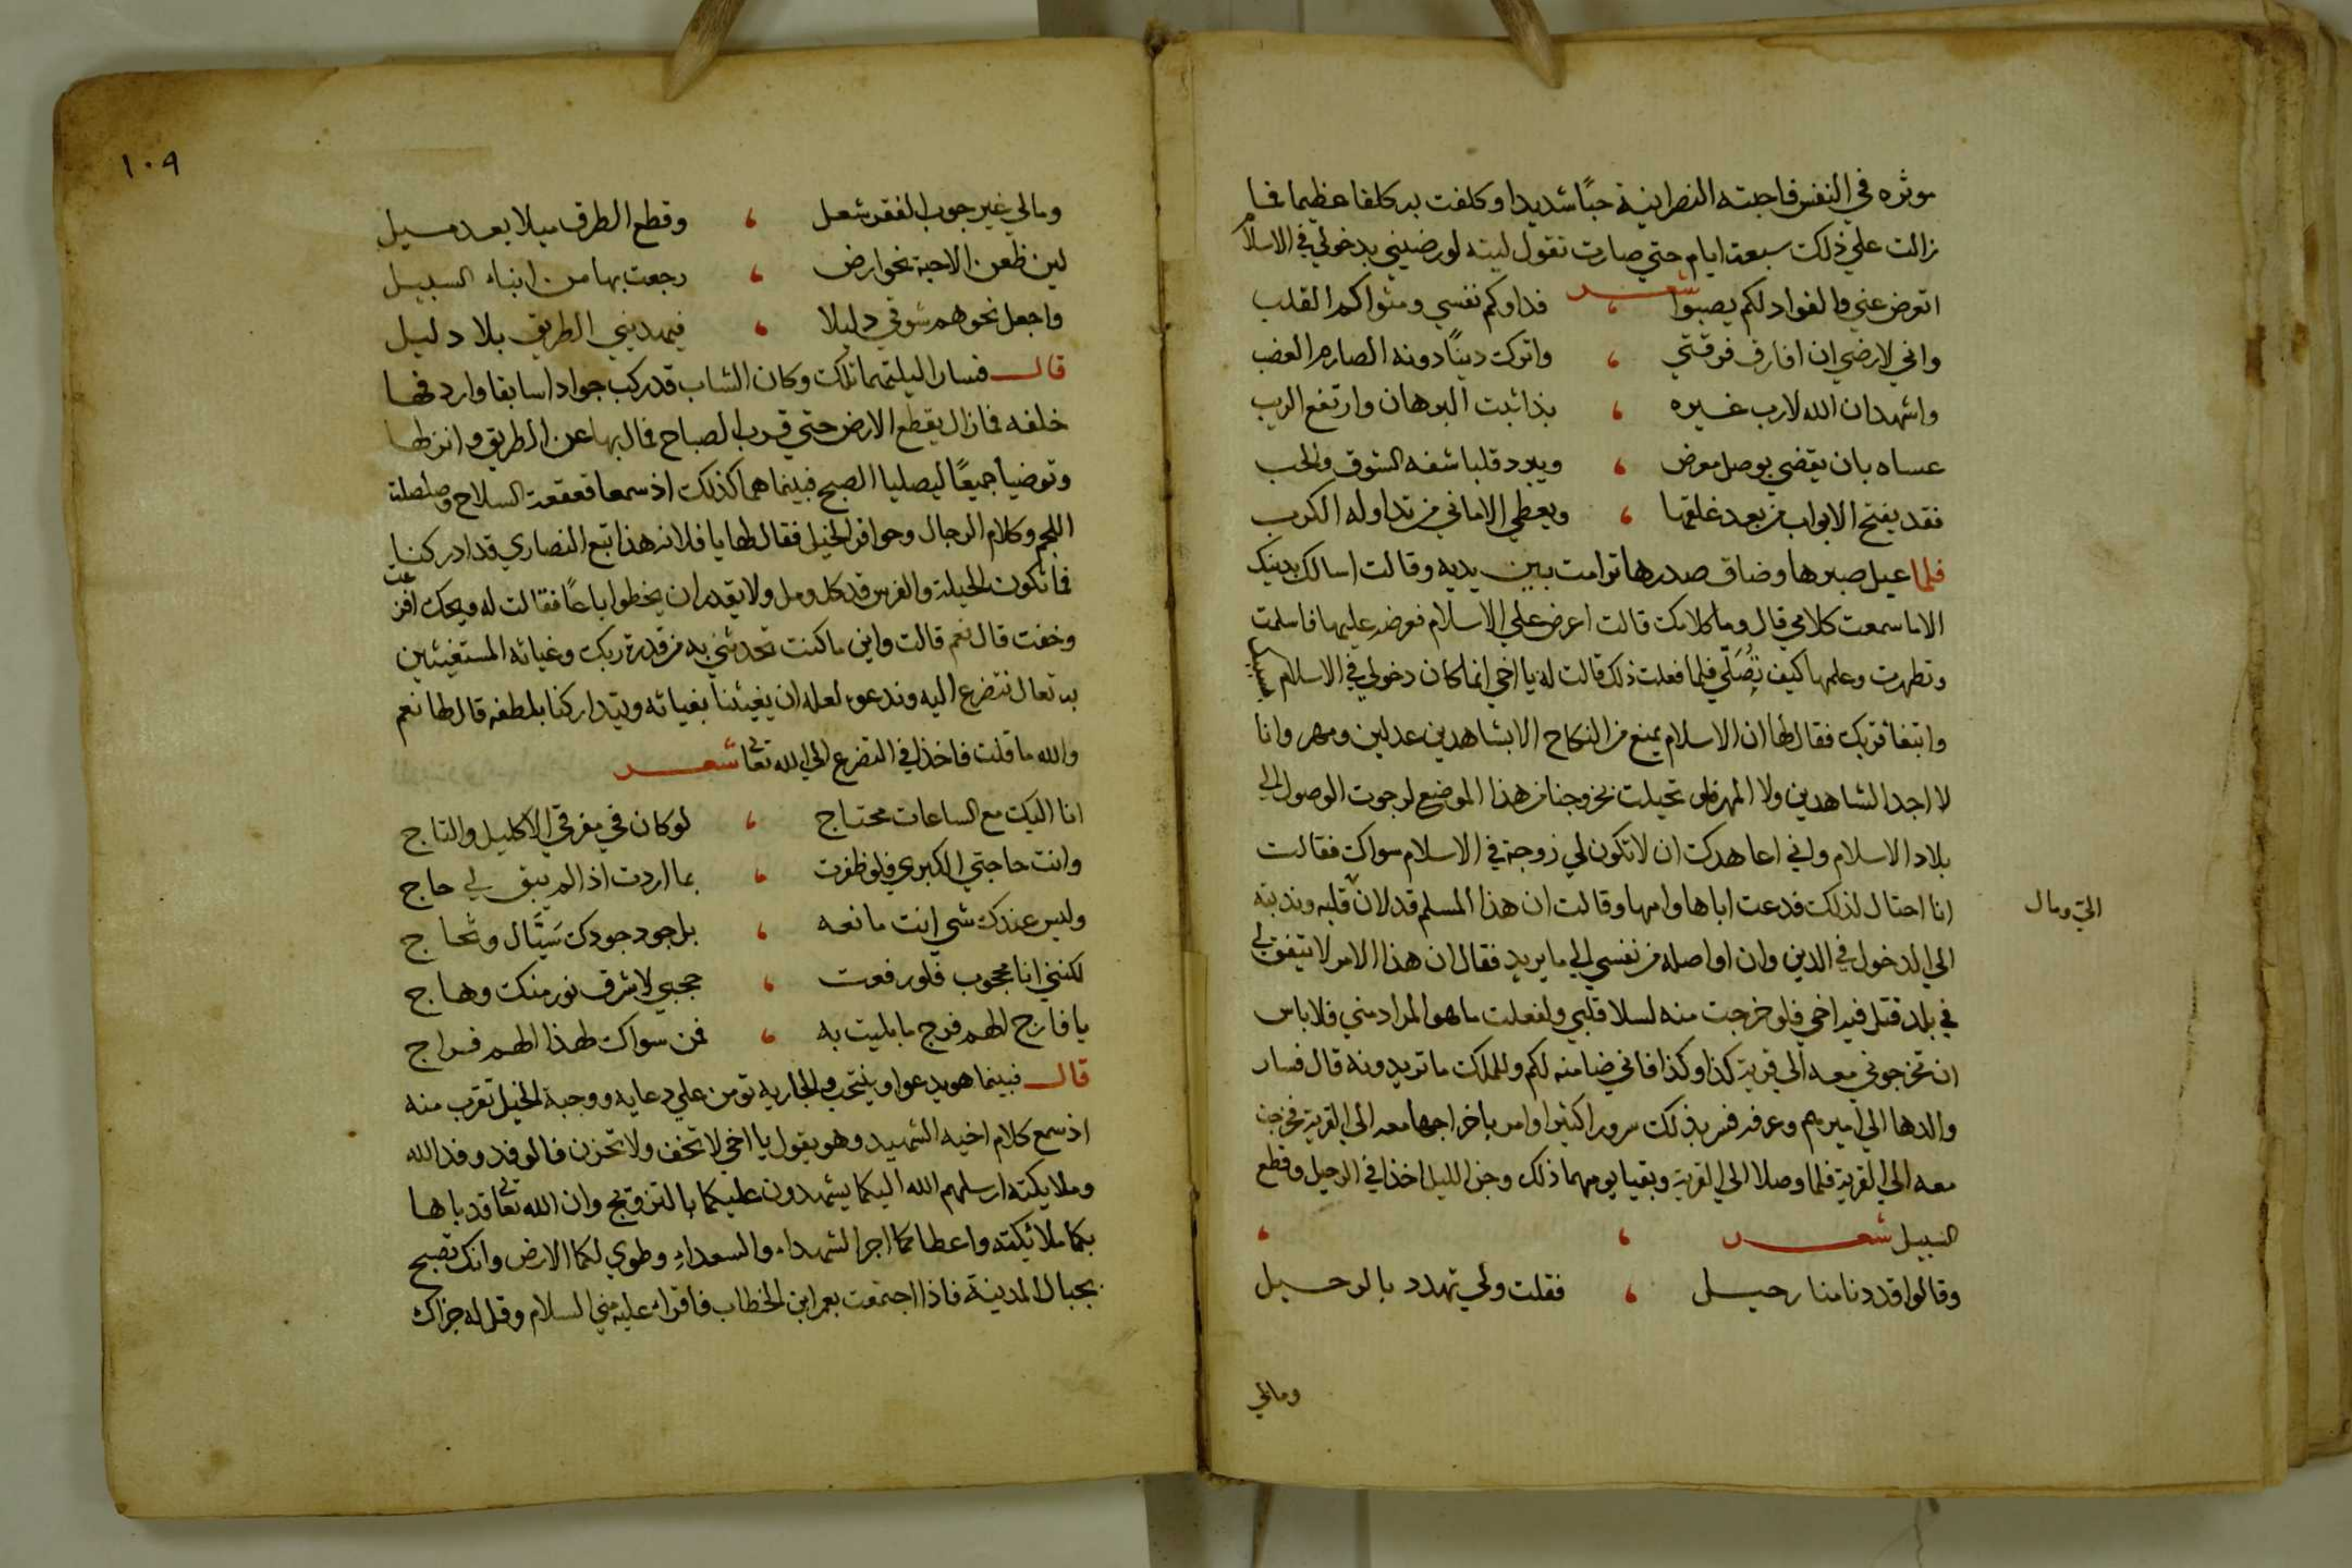 موثره في النفس فاحبته النصرانية حبًا شديدا وكلفت به كلفا عظيما فما
زالت علي ذلك سبعة ايام حتي صارت تقول ليته لو رضيني بدخولي في الاسلام
شعر
اتعرض عني والفواد لكم يصبوا ، فداوكم نفسي ومثواكم القلب
واني لارضي ان افارق فرقتي ، واترك دينًا دونه الصارم العضب
واشهد ان الله لا رب غيره ، بذا ثبت البرهان وارتفع الريب
عساه بان يقضي بوصل معرض ، ويبرد قلبا شفه الشوق والحب
فقد يفتح الابواب من بعد غلقها ، ويعطي الاماني من تداوله الكرب
فلما عيل صبرها وضاق صدرها ترامت بين يديه وقالت اسالك بدينك
الا ما سمعت كلامي قال وما كلامك قالت اعرض علي الاسلام فعرضه عليها فاسلمت
وتطهرت وعلمها كيف تُصَلّي فلما فعلت ذلك قالت له يا اخي انما كان دخولي في الاسلام بسببك
وابتغا قربك فقال لها ان الاسلام يمنع من النكاح الا بشاهدين عدلين ومهر وانا
لا اجد الشاهدين ولا المهر فلو تحيلت بخروجنا من هذا الموضع لرجوت الوصول الي
بلاد الاسلام واني اعاهدك ان لا تكون لي زوجة في الاسلام سواك فقالت
انا احتال لذلك فدعت اباها وامها وقالت ان هذا المسلم قد لان قلبه وندبته
الي ومال
الي الدخول في الدين وان اواصله من نفسي الي ما يريد فقال ان هذا الامر لا يتفق لي
في بلد قتل فيه اخي فلو خرجت منه لسلا قلبي ولفعلت ما هو المراد مني فلا باس
ان تخرجوني معه الي قرية كذا وكذا فاني ضامنه لكم وللملك ما تريدونه قال فسار
والدها الي اميرهم وعرفه فسر بذلك سرورا كثيرا وامر باخراجها معه الي القرية فخرجت
معه الي القرية فلما وصلا الي القرية وبقيا يومهما ذلك وجن الليل اخذا في الرحيل وقطع
السبيل شعر ، ،
وقالوا قد دنا منا رحيل ، فقلت ولي تهدد بالرحيل
ومالي
١٠٩
ومالي غير جوب القفر شغل ، وقطع الطرق ميلا بعد ميل
لين ظعن الاحبة نحو ارض ، رجعت بها من ابناء السبيل
واجعل نحوهم شوقي دليلا ، فيهديني الطريق بلا دليل
قال فسارا ليلتهما تلك وكان الشاب قد ركب جوادا سابقا واردفها
خلفه فما زال يقطع الارض حتي قرب الصباح فمال بها عن الطريق وانزلها
وتوضيا جميعًا ليصليا الصبح فبينما هما كذلك اذ سمعا قعقعة السلاح وصلصلة
اللجم وكلام الرجال وحوافر الخيل فقال لها يا فلانه هذا تبع النصاري قد ادركنا
فما تكون الحيلة والفرس قد كل ومل ولا يقدر ان يخطوا باعًا فقالت له ويحك افزعت
وخفت قال نعم قالت واين ما كنت تحدثني به من قدرة ربك وغياثه المستغيثين
به تعال نتضرع اليه وندعوه لعله ان يغيثنا بغياثه ويتداركنا بلطفه قال لها نعم
والله ما قلت فاخذا في التضرع الي الله تعا شعر
انا اليك مع الساعات محتاج ، لو كان في مفرقي الاكليل والتاج
وانت حاجتي الكبري فلو ظفرت ، بما اردت اذا لم يبق لي حاج
وليس عندك شي انت مانعه ، بل جود جودك سَيَّال وثجاج
لكنني انا محجوب فلو رفعت ، حجبي لاشرق نور منك وهاج
يا فارج الهم فرج ما بليت به ، فمن سواك لهذا الهم فراج
قال فبينما هو يدعوا وينتحب والجاريه تومن علي دعايه ووجبة الخيل تقرب منه
اذ سمع كلام اخيه الشهيد وهو يقول يا اخي لا تخف ولا تحزن فالوفد وفد الله
وملايكته ارسلهم الله اليكما يشهدون عليكما بالتزويج وان الله تعا قد باها
بكما ملائكته واعطاكما اجر الشهداء والسعداءِ وطوي لكما الارض وانك تصبح
بجبال المدينة فاذا اجتمعت بعمر ابن الخطاب فاقراء عليه مني السلام وقل له جزاك